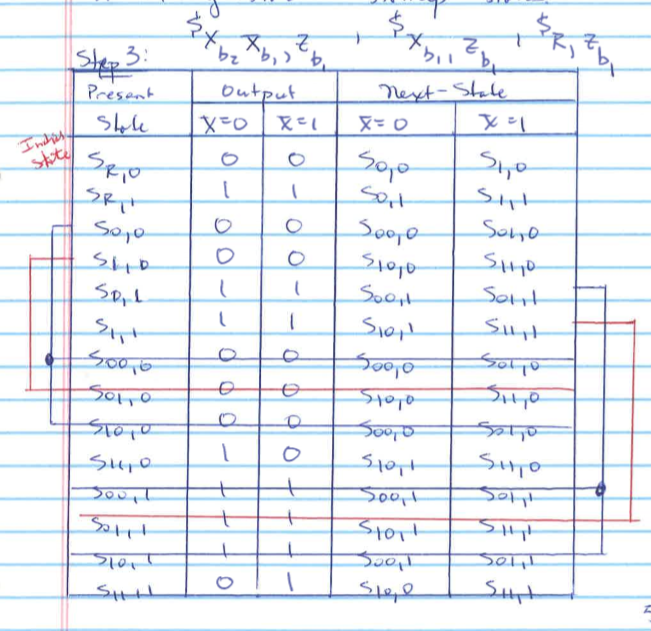 Step 3: $ X_b2 X_b1, Z_b1 , $ X_b1, Z_b1 , $ R, Z_b1
Present Output Next-State
State X=0 X=1 X=0 X=1
State
S_R,0 0 0 S_0,0 S_1,0
S_R,1 1 1 S_0,1 S_1,1
S_0,0 0 0 S_00,0 S_01,0
S_1,0 0 0 S_10,0 S_11,0
S_0,1 1 1 S_00,1 S_01,1
S_1,1 1 1 S_10,1 S_11,1
S_00,0 0 0 S_00,0 S_01,0
S_01,0 0 0 S_10,0 S_11,0
S_10,0 0 0 S_00,0 S_01,0
S_11,0 1 0 S_10,1 S_11,0
S_00,1 1 1 S_00,1 S_01,1
S_01,1 1 1 S_10,1 S_11,1
S_10,1 1 1 S_00,1 S_01,1
S_11,1 0 1 S_10,0 S_11,1